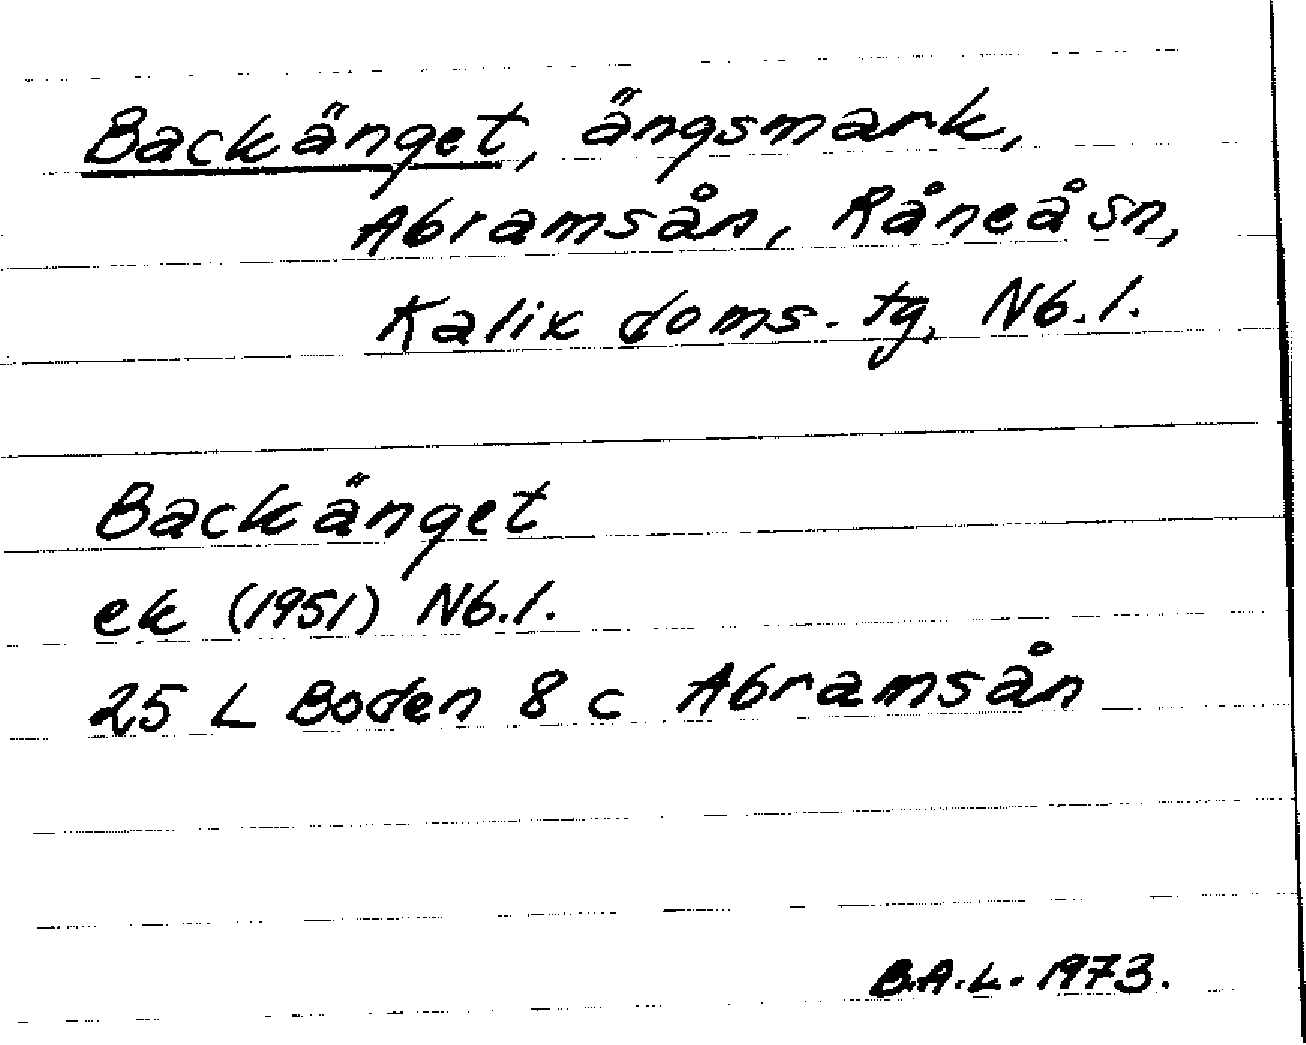 Backänget, ängsmark,
Abramsån, Råneå sn,
Kalix doms. tg, Nb. l.
Backänget
ek (1951) Nb. l.
25 L Boden 8 c Abramsån
B.A.L. 1973.